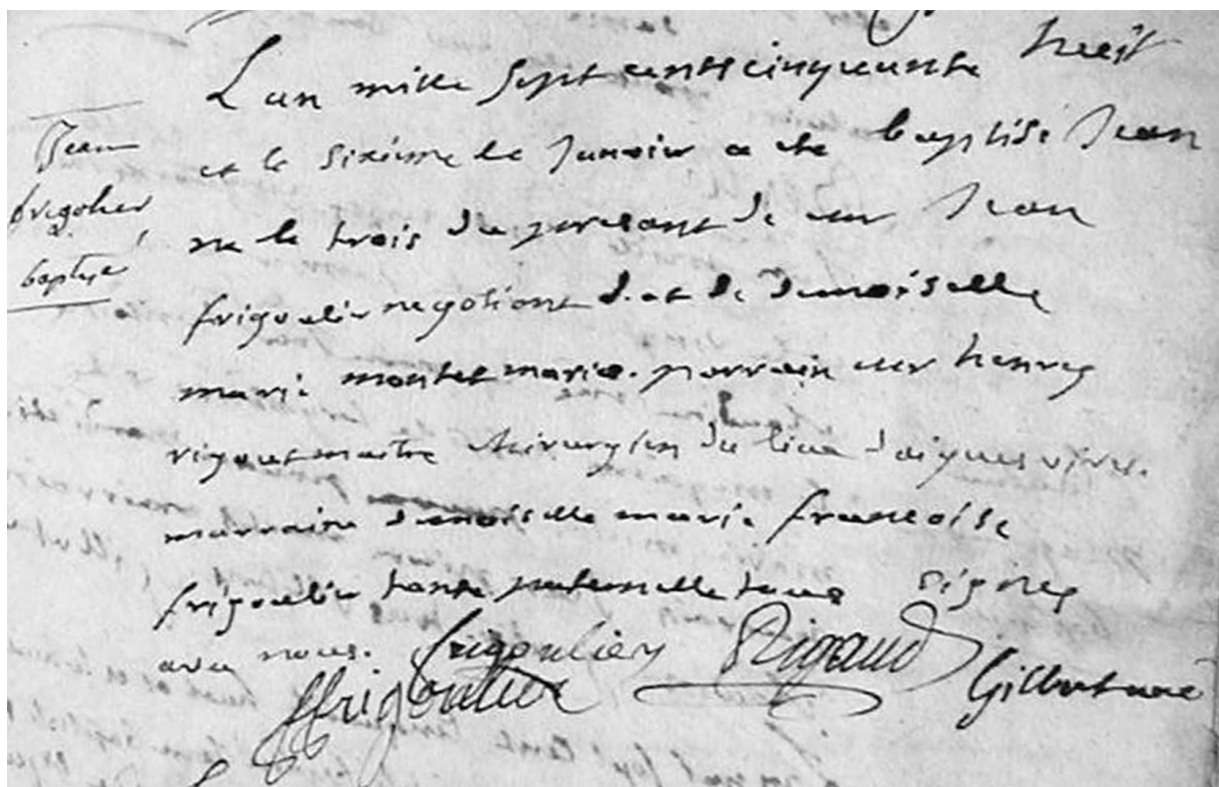 Jean
frigolier
baptise
L an mille sept cents cinquante heit
et le sixieme de Janvier a ete baptisé Jean
ne le trois du present de sieur Jean
frigoulier negotiant d. et de demoiselle
marie montet maries. parrain sieur henry
rigaut maitre chirurgien du lieu d'aiguesvives.
marraine demoiselle marie francoise
frigoulier tante paternelle tous signes
avec nous. frigoulier Rigaud
ffrigoulier Gilbert curé